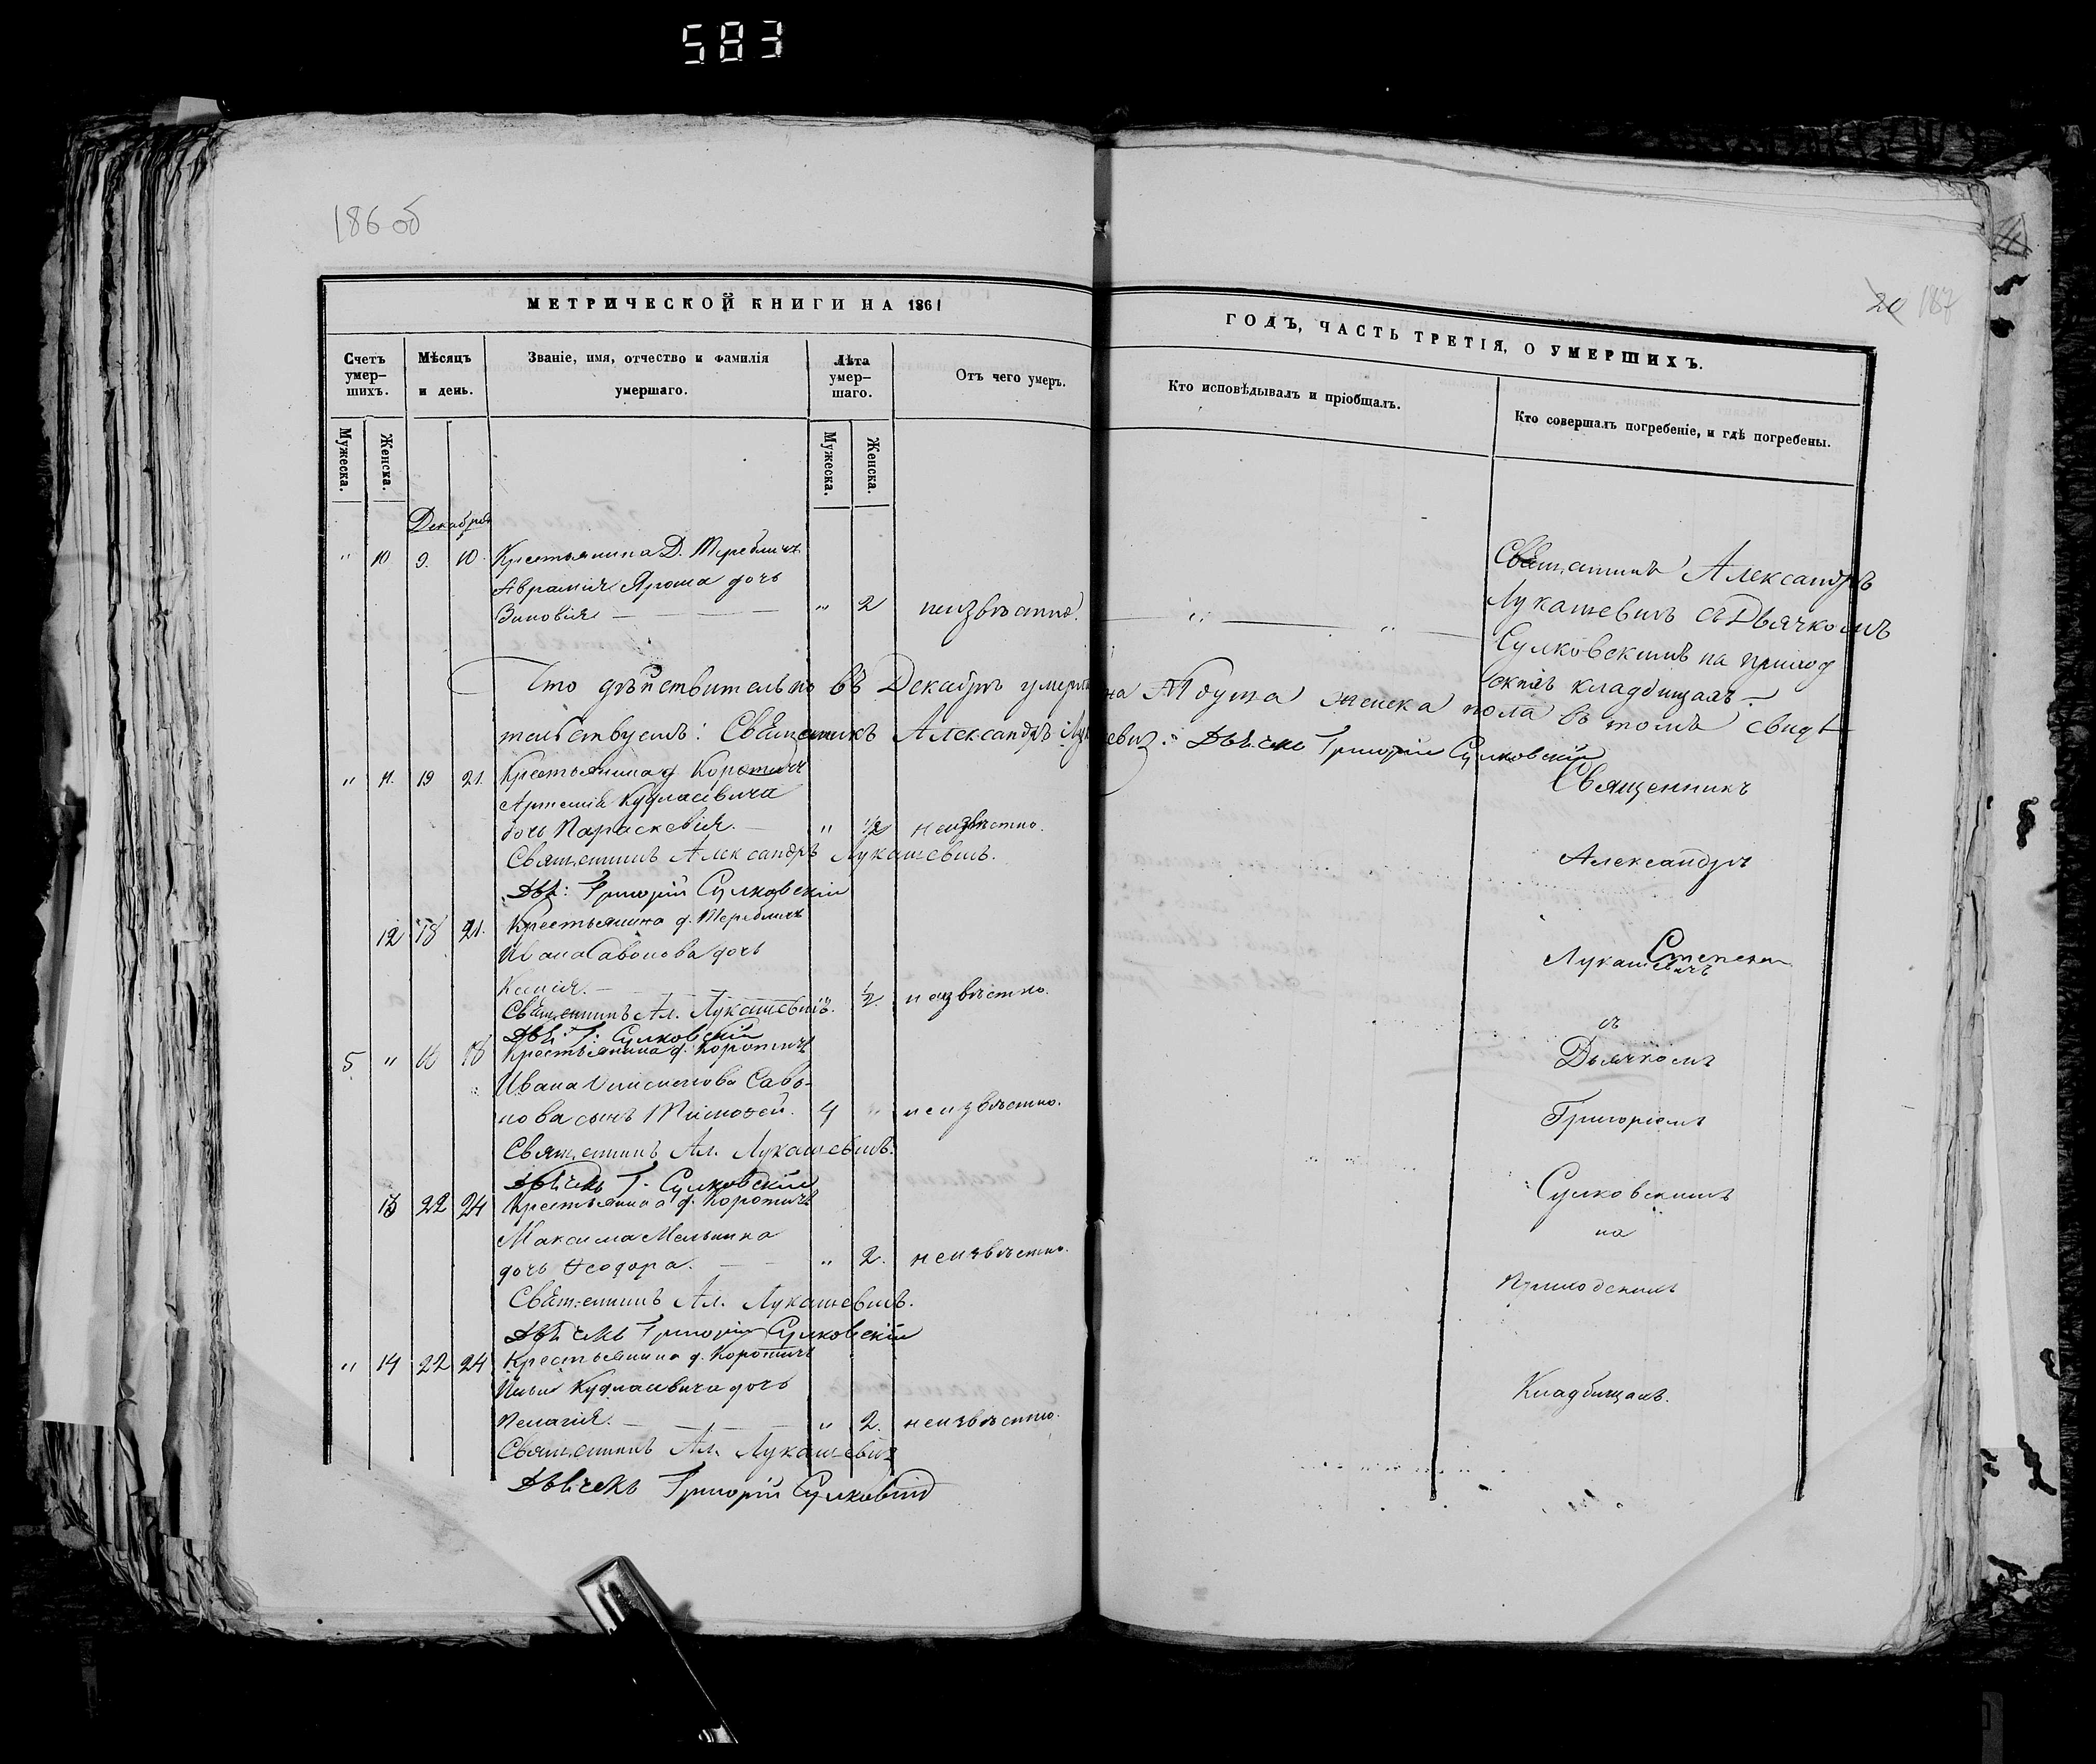 583
186 об
20 187
МЕТРИЧЕСКОЙ КНИГИ НА 1861
ГОДЪ, ЧАСТЬ ТРЕТІЯ, О УМЕРШИХЪ.
Счетъ умер-
шихъ.
Мѣсяцъ
и день.
Званіе, имя, отчество и фамилія
умершаго.
Лѣта
умер-
шаго.
Отъ чего умеръ.
Кто исповѣдывалъ и пріобщалъ.
Кто совершалъ погребеніе, и гдѣ погребены.
Мужеска.
Женска.
Мужеска.
Женска.
Декабрь
" 10 9. 10. Крестьянина Д. Теребличъ
Аврамія Яроша дочь
Зиновія — " 2 неизвѣстно.
Священникъ Александръ
Лукашевичъ съ Дьячкомъ
Сулковскимъ на приход
скихъ кладбищахъ.
Что дѣйствительно въ Декабрѣ умерла одна душа женска пола въ томъ свидѣ-
тельствуемъ: Священникъ Александръ Лукашевичъ. Дьячекъ Григорій Сулковскій
" 11. 19 21. Крестьянина д. Коротичъ
Артемія Кудласевича
дочь Параскевія. — " 1/2 неизвѣстно.
Священникъ Александръ Лукашевичъ.
Дьч: Григорій Сулковскій
12 18 21. Крестьянина д. Теребличъ
Ивана Савонова дочь
Ксенія. — 1/2. неизвѣстно.
Священникъ Ал. Лукашевичъ.
Дьч: Г: Сулковскій
5 " 16 18 Крестьянина д. Коротичъ
Ивана Саво-
нова сынъ Тимофей. 4 " неизвѣстно.
Священникъ Ал. Лукашевичъ.
Дьячекъ Г. Сулковскій
13 22 24 Крестьянина д. Коротичъ
Максима Мельника
дочь Ѳеодора. — " 2. неизвѣстно.
Священникъ Ал. Лукашевичъ.
Дьячекъ Григорій Сулковскій
" 14 22 24 Крестьянина д. Коротичъ
Кудласевича дочь
Пелагія. — " 2. неизвѣстно.
Священникъ Ал. Лукашевичъ
Дьячекъ Григорій Сулковскій
Священникъ
Александръ
Степанъ
Лукашевичъ
съ
Дьячкомъ
Григоріемъ
Сулковскимъ
на
Приходскихъ
Кладбищахъ.